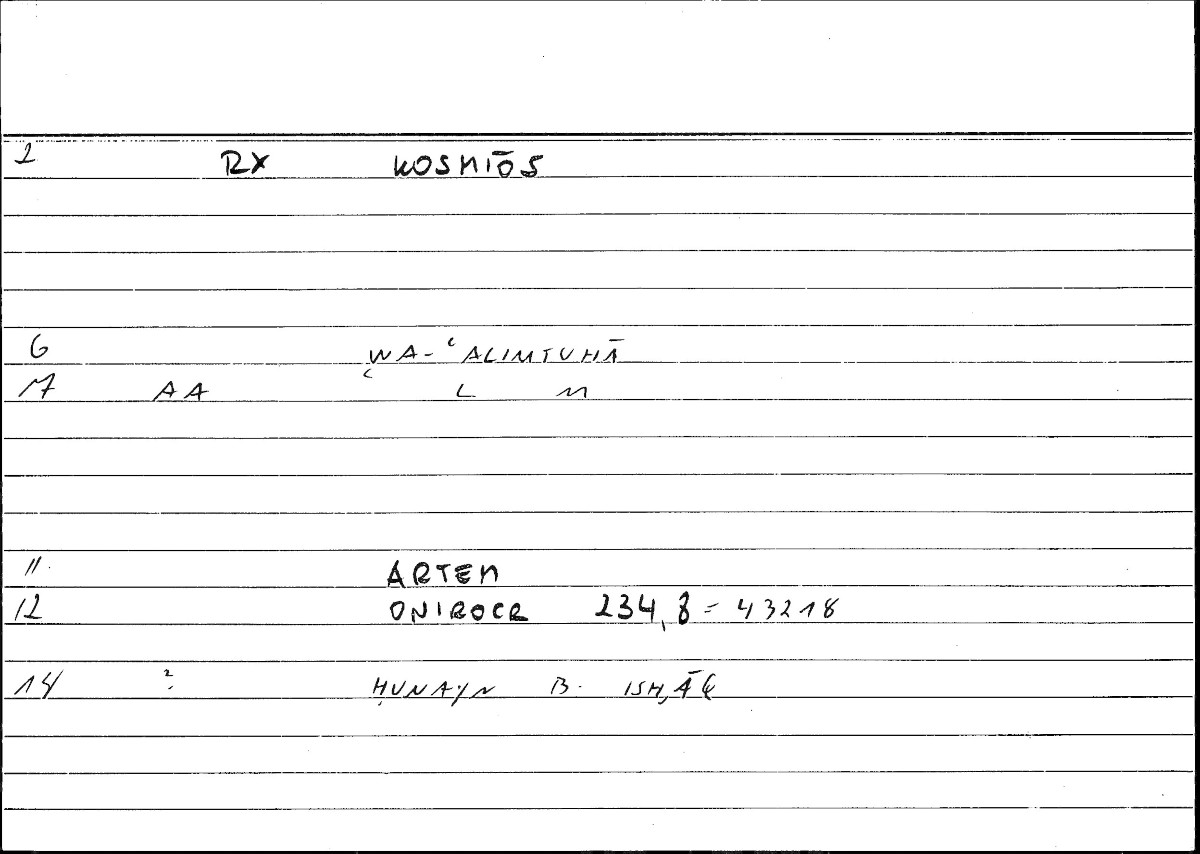 2 RX KOSMIŌS
6 WA- ʿALIMTUHĀ
7 AA ʿ L M
11 ARTEM
12 ONIROCR 234,8 = 432 18
14 ? ḤUNAYN B. ISḤĀQ